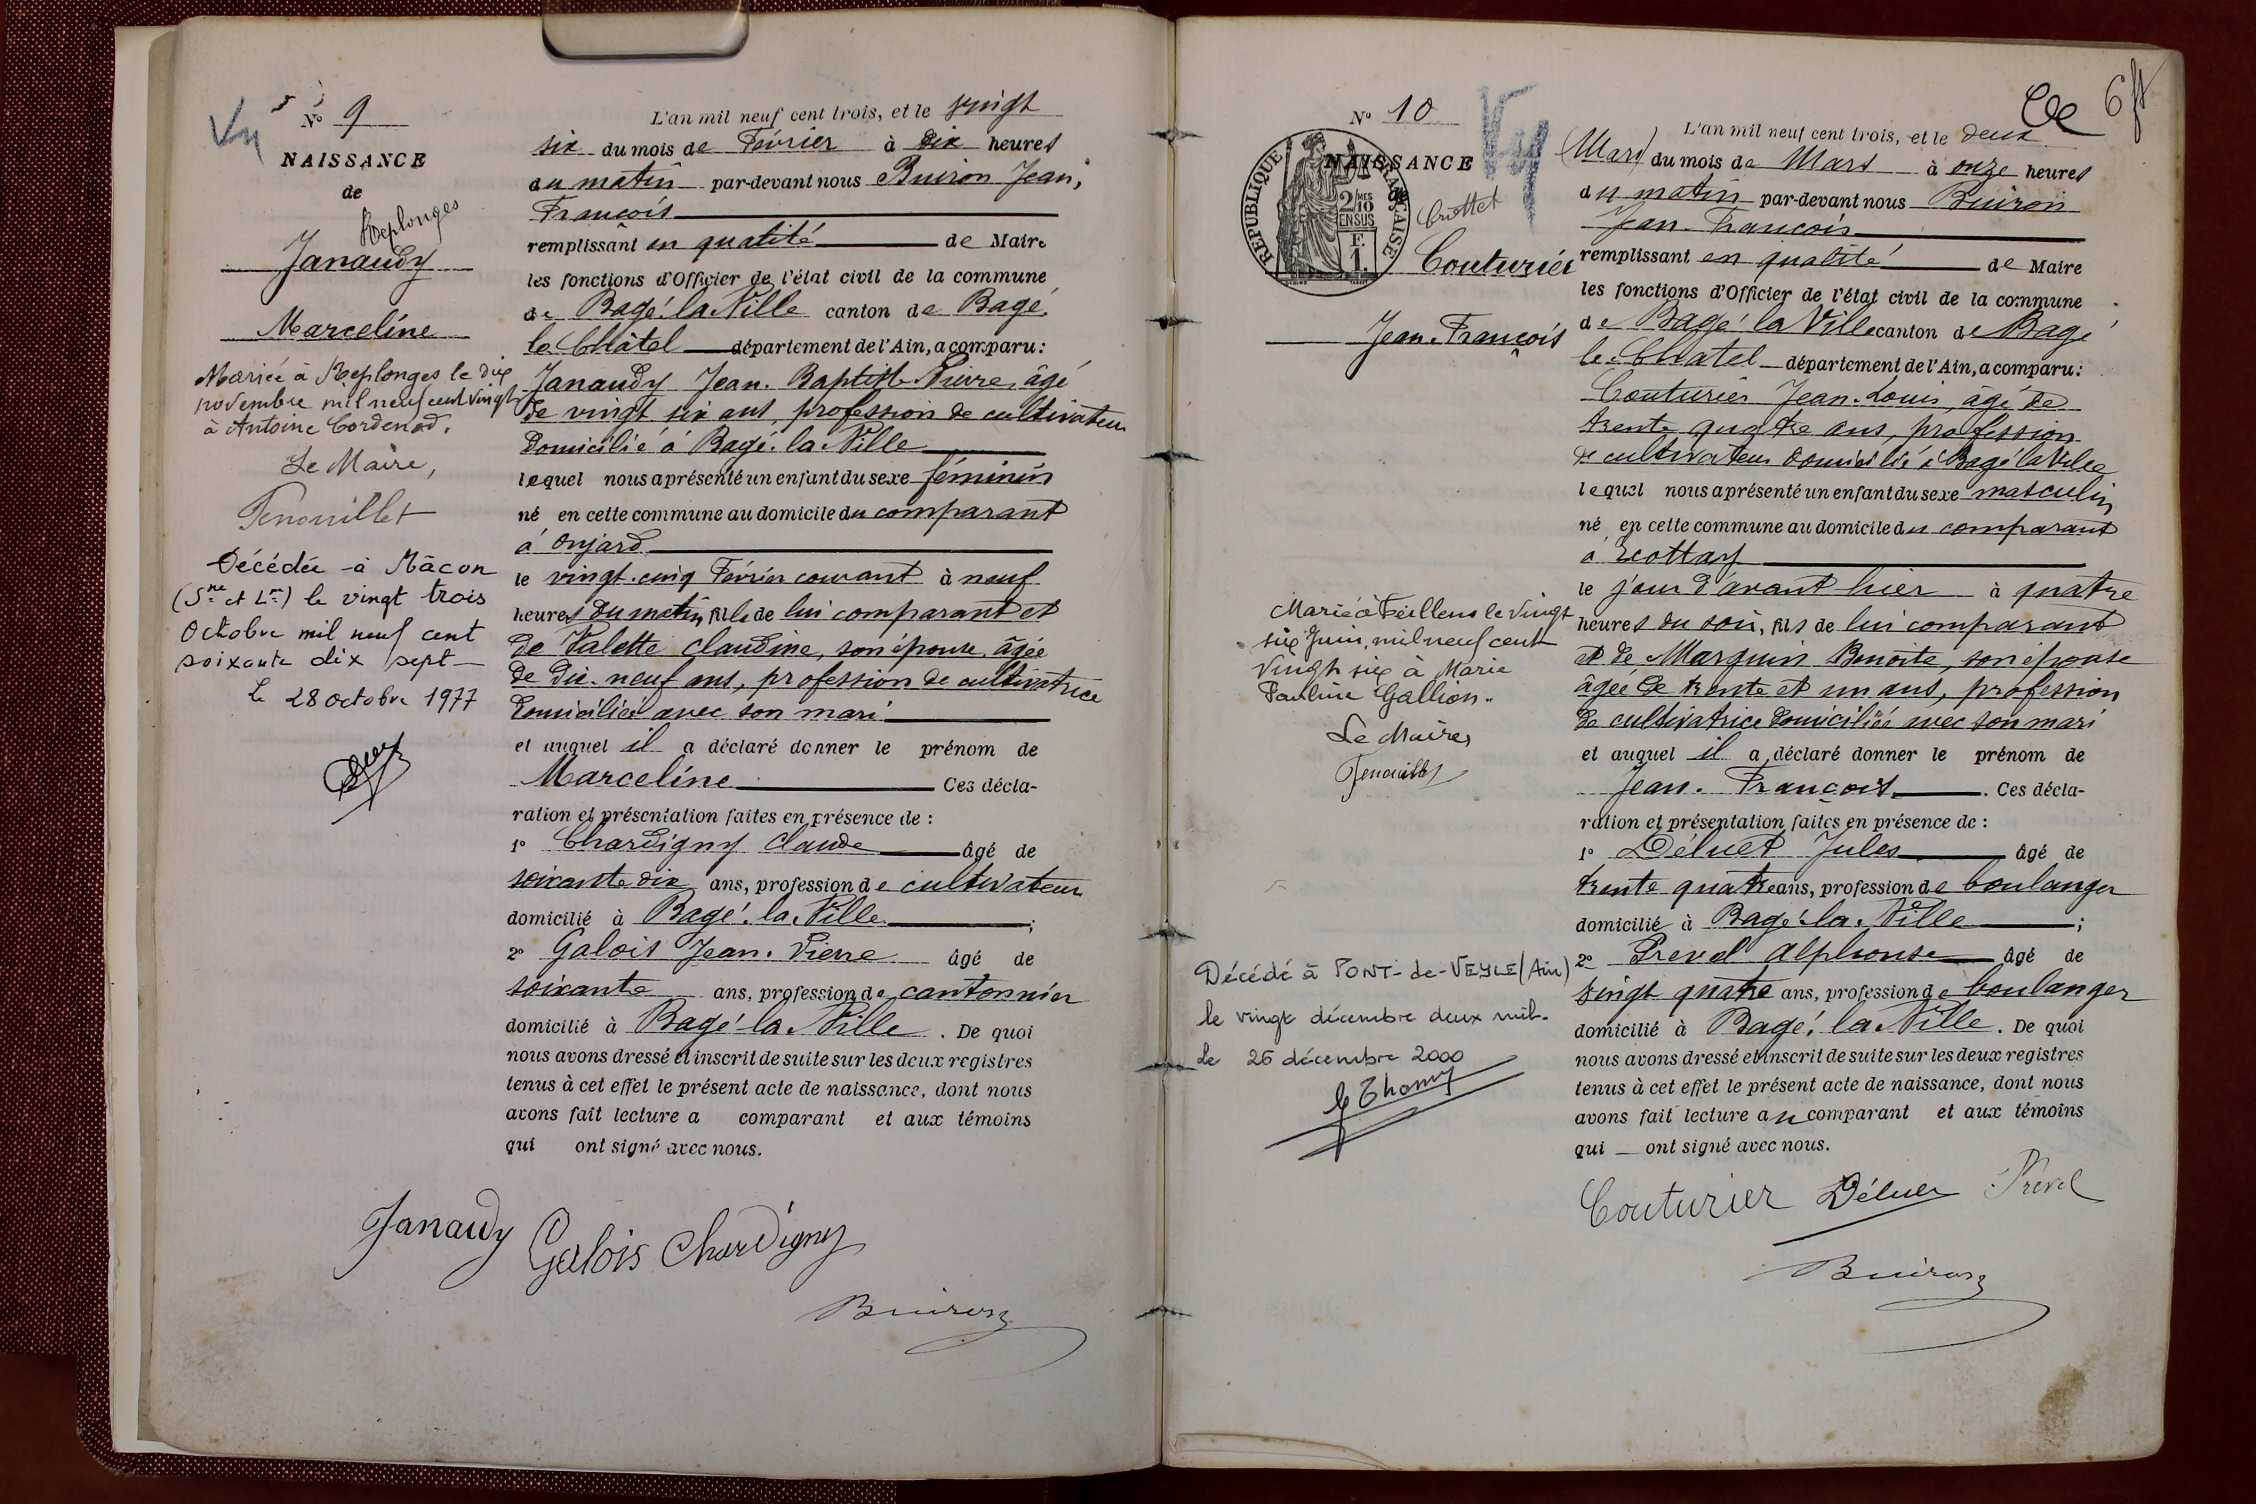 Vu
Nº 9
NAISSANCE
de
Replonges
Janaudy
Marceline
Mariée à Replonges le dix
novembre mil neuf cent vingt
à Antoine Cordenod.
Le Maire,
Fenouillet
Décédée à Mâcon
(S.ne et L.re) le vingt trois
Octobre mil neuf cent
soixante dix sept
Le 28 octobre 1977
L'an mil neuf cent trois, et le vingt
six du mois de Février à dix heures
du matin par-devant nous Buiron Jean,
François
remplissant en qualité de Maire
les fonctions d'Officier de l'état civil de la commune
de Bagé-la-Ville canton de Bagé
le Châtel département de l'Ain, a comparu:
Janaudy Jean-Baptiste Pierre, âgé
de vingt six ans, profession de cultivateur
domicilié à Bagé-la-Ville
lequel nous a présenté un enfant du sexe féminin
né en cette commune au domicile du comparant
à Onjard
le vingt-cinq Février courant à neuf
heures du matin, fils de lui comparant et
de Valette Claudine, son épouse, âgée
de dix-neuf ans, profession de cultivatrice
domiciliée avec son mari
et auquel il a déclaré donner le prénom de
Marceline Ces décla-
ration et présentation faites en présence de :
1º Chardigny Claude âgé de
soixante dix ans, profession de cultivateur
domicilié à Bagé-la-Ville ;
2º Galois Jean-Pierre âgé de
soixante ans, profession de cantonnier
domicilié à Bagé-la-Ville. De quoi
nous avons dressé et inscrit de suite sur les deux registres
tenus à cet effet le présent acte de naissance, dont nous
avons fait lecture a comparant et aux témoins
qui ont signé avec nous.
Janaudy Galois Chardigny
Buiron
6
Nº 10
Vu
NAISSANCE
de
REPUBLIQUE FRANÇAISE
2/10 MES
EN SUS
F.
1.
Crottet
Couturier
Jean-François
Marié à Feillens le vingt
six Juin, mil neuf cent
vingt six à Marie
Pauline Gallion.
Le Maire,
Fenouillet
Décédé à PONT-de-VEYLE (Ain)
le vingt décembre deux mil.
Le 26 décembre 2000
L'an mil neuf cent trois, et le deux
(Mars) du mois de Mars à onze heures
du matin par-devant nous Buiron
Jean-François
remplissant en qualité de Maire
les fonctions d'Officier de l'état civil de la commune
de Bagé la Ville canton de Bagé
le Chatel département de l'Ain, a comparu:
Couturier Jean-Louis, âgé de
trente quatre ans, profession
de cultivateur domicilié à Bagé la Ville
lequel nous a présenté un enfant du sexe masculin
né en cette commune au domicile du comparant
à Ecottay
le jour d'avant hier à quatre
heures du soir, fils de lui comparant
et de Marguin Benoîte, son épouse
âgée de trente et un ans, profession
de cultivatrice domiciliée avec son mari
et auquel il a déclaré donner le prénom de
Jean-François. Ces décla-
ration et présentation faites en présence de :
1º Déluet Jules âgé de
trente quatre ans, profession de boulanger
domicilié à Bagé-la-Ville ;
2º Prevel Alphonse âgé de
vingt quatre ans, profession de boulanger
domicilié à Bagé-la-Ville. De quoi
nous avons dressé et inscrit de suite sur les deux registres
tenus à cet effet le présent acte de naissance, dont nous
avons fait lecture au comparant et aux témoins
qui ont signé avec nous.
Couturier Déluet Prevel
Buiron